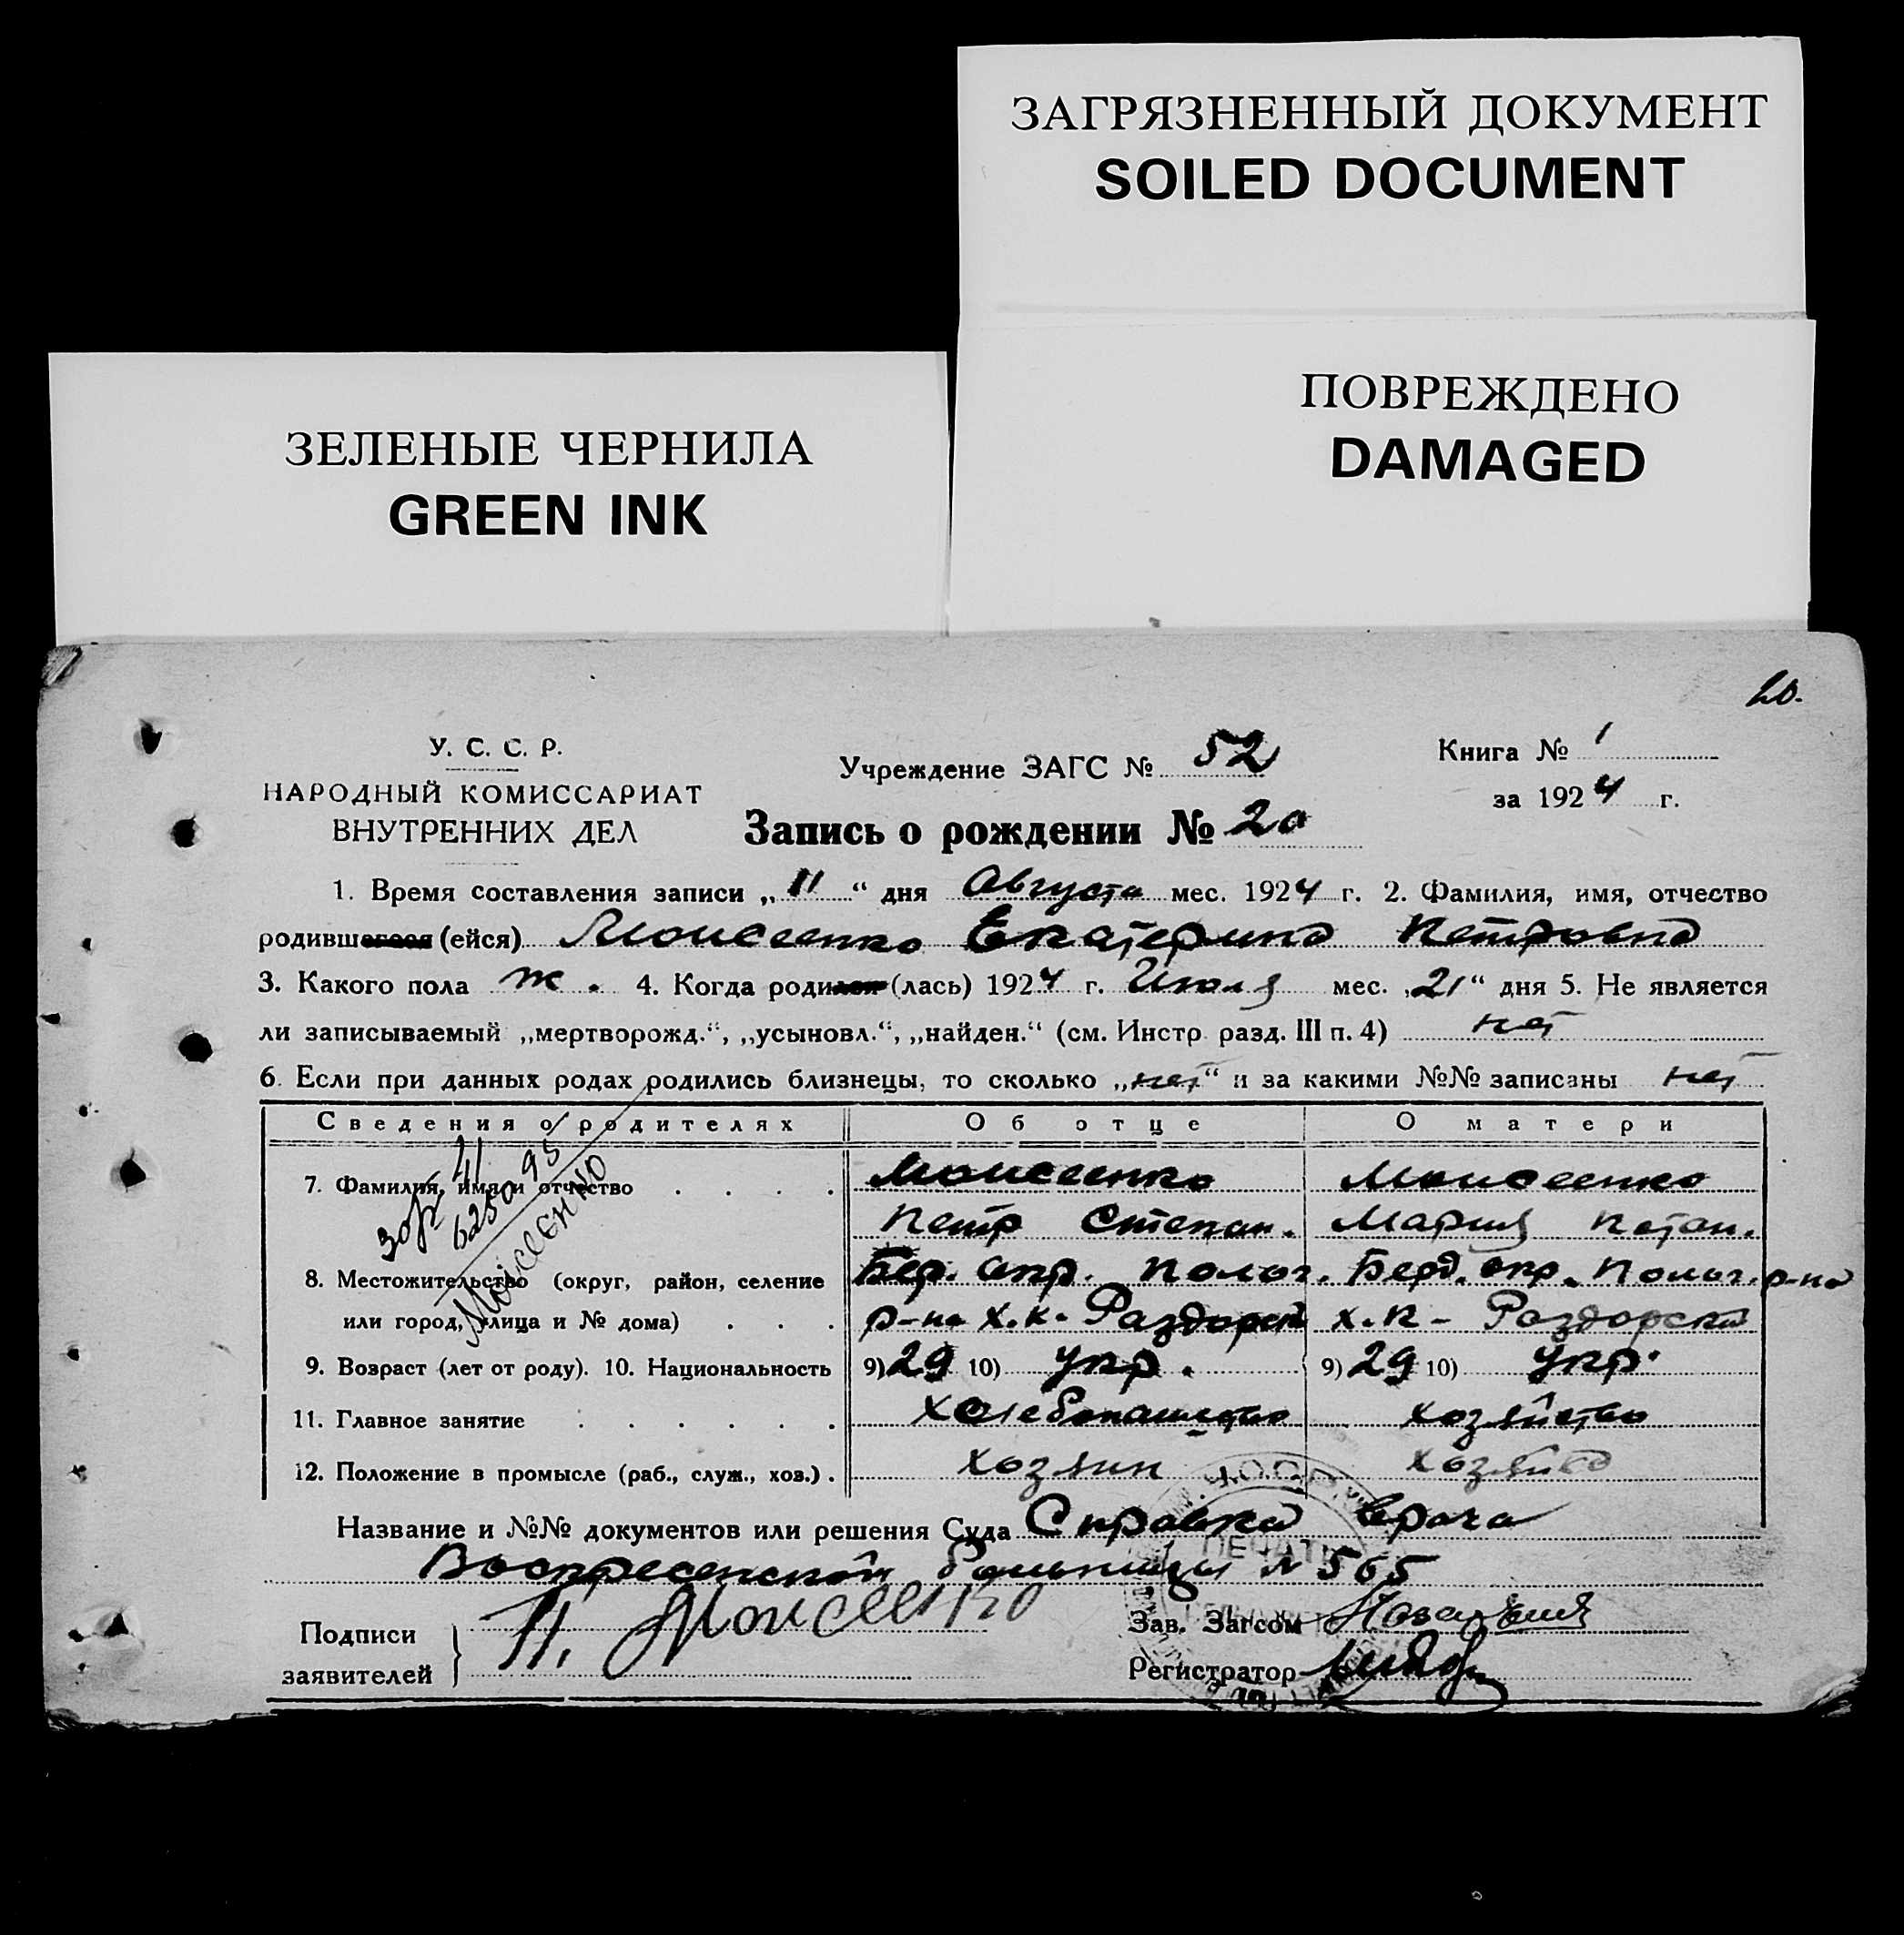 ЗАГРЯЗНЕННЫЙ ДОКУМЕНТ
SOILED DOCUMENT
ПОВРЕЖДЕНО
DAMAGED
ЗЕЛЕНЫЕ ЧЕРНИЛА
GREEN INK
20.
У. С. С. Р.
НАРОДНЫЙ КОМИССАРИАТ
ВНУТРЕННИХ ДЕЛ
Учреждение ЗАГС № 52
Книга № 1
за 1924 г.
Запись о рождении № 20
1. Время составления записи „11“ дня Августа мес. 1924 г. 2. Фамилия, имя, отчество
родившегося (ейся) Моисеенко Екатерина Петровна
3. Какого пола ж. 4. Когда родился (лась) 1924 г. Июля мес. „21“ дня 5. Не является
ли записываемый „мертворожд.“, „усыновл.“, „найден.“ (см. Инстр. разд. III п. 4) нет
6. Если при данных родах родились близнецы, то сколько „нет“ и за какими №№ записаны нет
Сведения о родителях Об отце О матери
7. Фамилия, имя и отчество . . . . Моисеенко Моисеенко
Петр Степан. Мария Потап.
8. Местожительство (округ, район, селение Бер. окр. Полог. Берд. окр. Полог. р-на
или город, улица и № дома) . . . р-на х.к. Раздорск х.к - Раздорска
9. Возраст (лет от роду). 10. Национальность 9) 29 10) укр. 9) 29 10) укр.
11. Главное занятие . . . . . . хлебопашество хозяйство
12. Положение в промысле (раб., служ., хоз.) . хозяин хозяйка
41
95
Моисеенко
Название и №№ документов или решения Суда Справка врача
Воскресенской больницы № 565
Подписи
заявителей
П. Моисеенко
Зав. Загсом
Регистратор
У.С.С.Р.
ПЕЧАТЬ